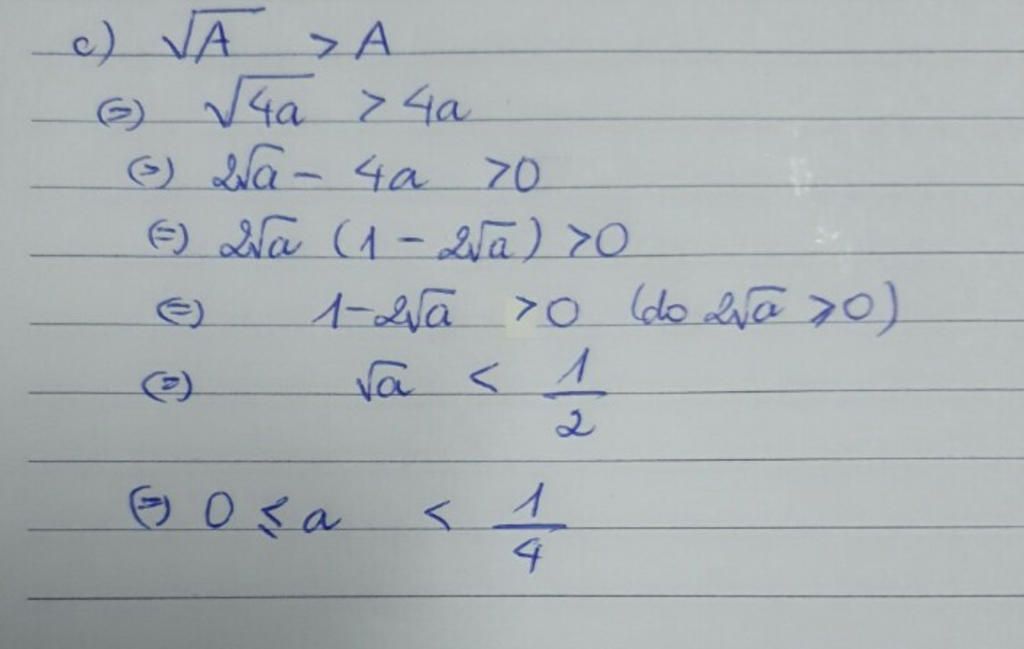 c) √A > A
⇔ √4a > 4a
⇔ 2√a - 4a > 0
⇔ 2√a (1 - 2√a) > 0
⇔ 1 - 2√a > 0 (do 2√a ⩾ 0)
⇔ √a < 1/2
⇔ 0 ⩽ a < 1/4